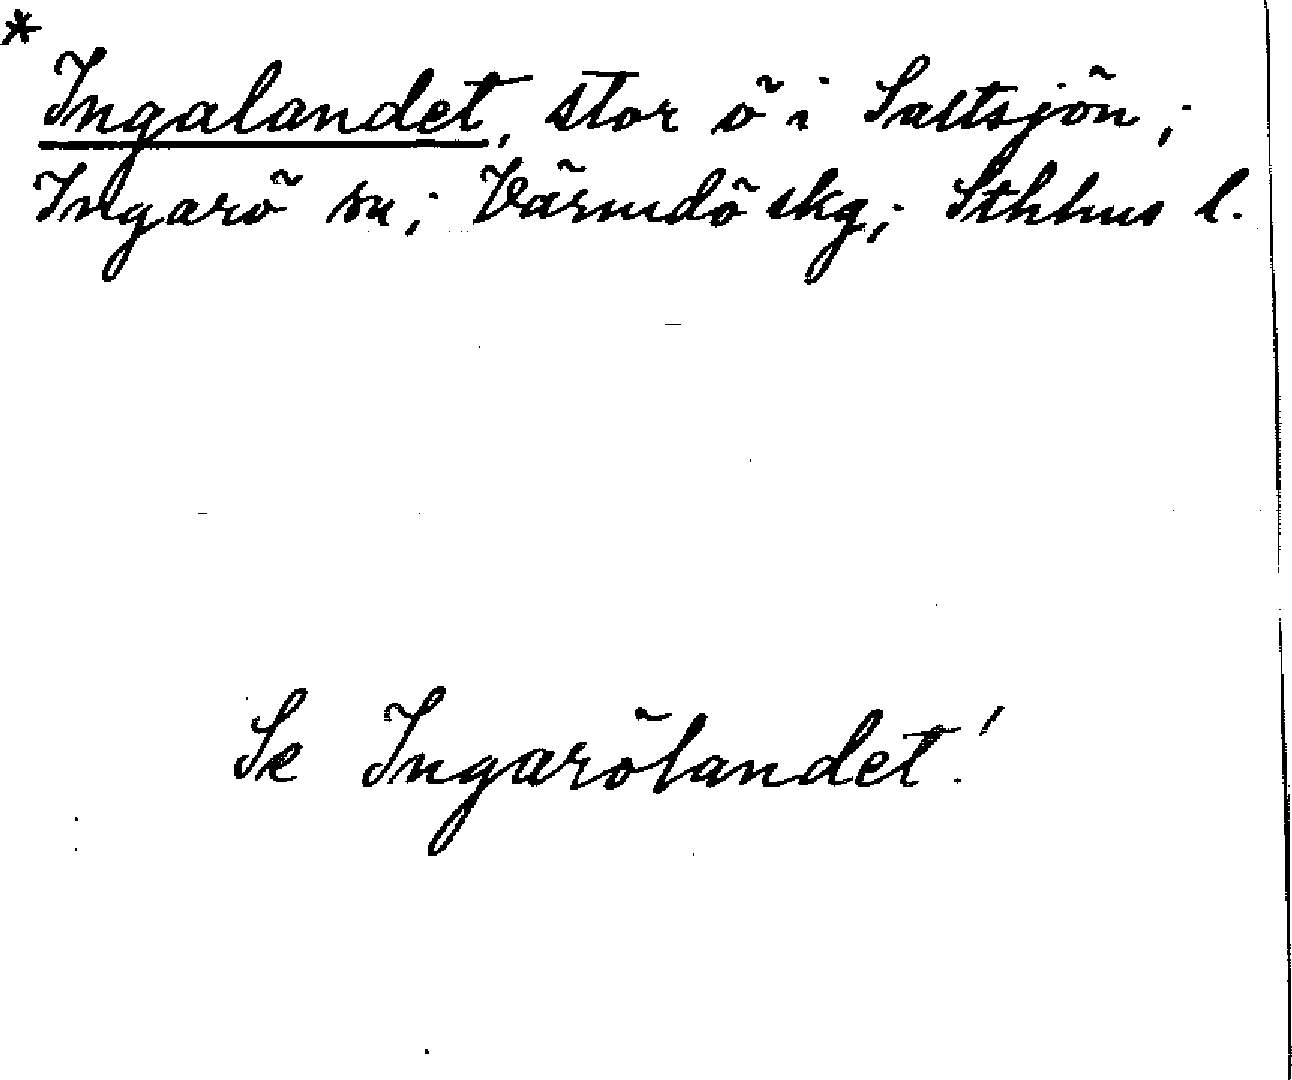 *
Ingalandet, stor ö i Saltsjön;
Ingarö sn; Värmdö skg; Sthhus l.
Se Ingarölandet!